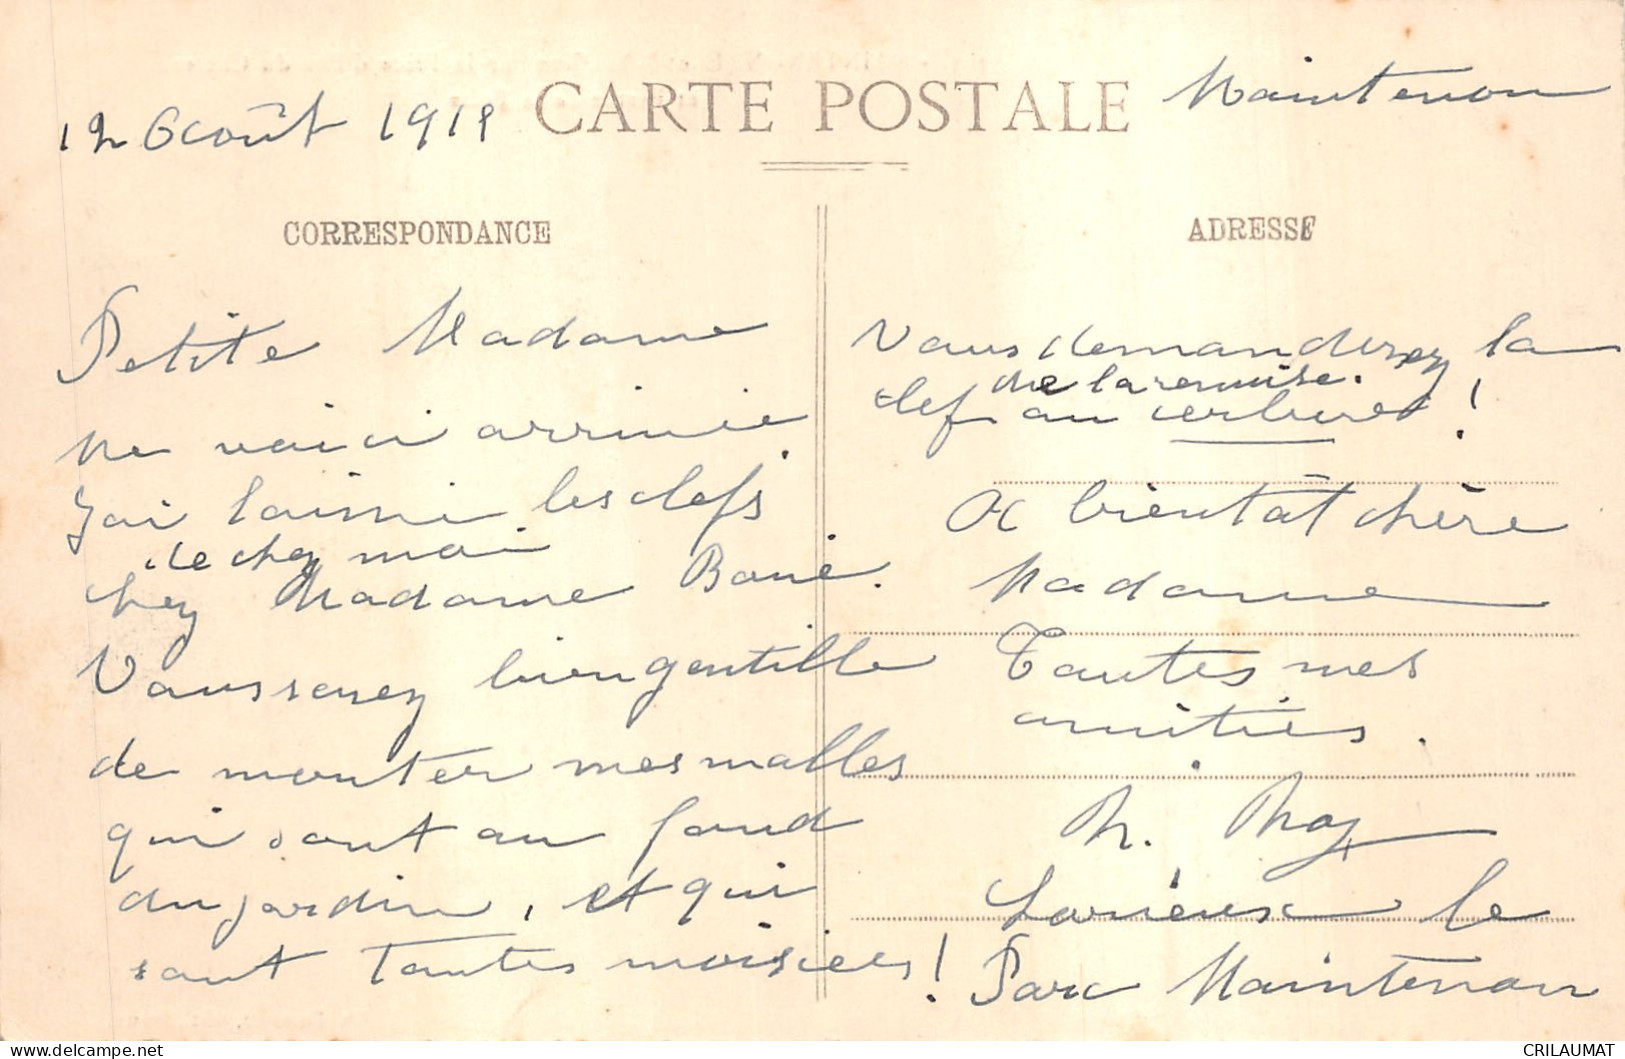 12 Août 1911
CARTE POSTALE
Maintenon
CORRESPONDANCE
Petite Madame
Me voici arrivée
J'ai laissé les clefs
de chez moi
chez Madame
Vous serez bien gentille
de monter mes malles
qui sont au fond
du jardin, et qui
sont toutes moisies !
ADRESSE
Vous demanderez la
de la remise.
clef au cerbère !
A bientôt chère
Madame
Toutes mes
amitiés.
le
Parc Maintenon
Delcampe.net
CRILAUMAT